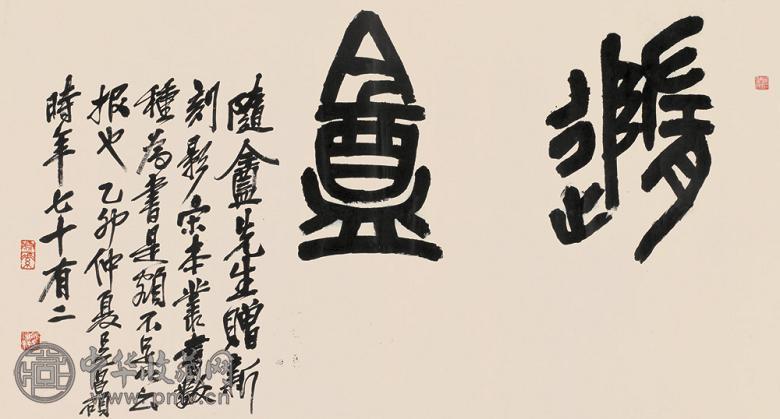 隨盦
隨盦先生贈新
刻影宋本叢書數
種為書是額不足云
报也乙卯仲夏吳昌碩
時年七十有二
中华收藏网